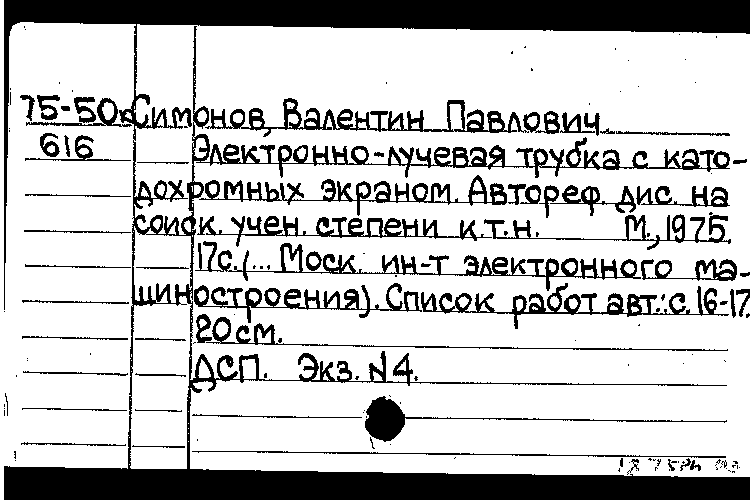 75-50к Симонов, Валентин Павлович.
616 Электронно-лучевая трубка с като-
дохромных экраном. Автореф. дис. на
соиск. учен. степени к.т.н. М., 1975.
17с. (... Моск. ин-т электронного ма-
шиностроения). Список работ авт.: с. 16-17.
20см.
ДСП. Экз. N4.